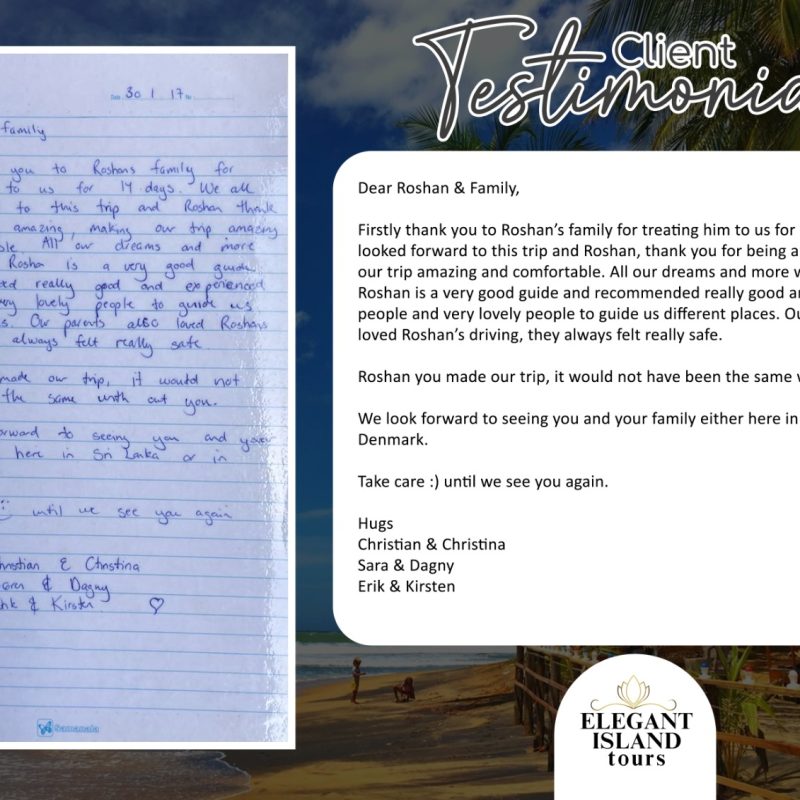 Client
Testimonia
Date 30 1 17 No
family
you to Roshans family for
to us for 14 days. We all
to this trip and Roshan thank
amazing, making our trip amazing
ble. All our dreams and more
Rosha is a very good guide
ed really good and experienced
ery lovely people to guide us
s. Our parents also loved Roshans
always felt really safe
made our trip, it would not
the same with out you.
orward to seeing you and your
here in Sri Lanka or in
until we see you again
hristian & Christina
& Dagny
& Kirsten ♡
Samanala
Dear Roshan & Family,
Firstly thank you to Roshan’s family for treating him to us for
looked forward to this trip and Roshan, thank you for being a
our trip amazing and comfortable. All our dreams and more w
Roshan is a very good guide and recommended really good an
people and very lovely people to guide us different places. Ou
loved Roshan’s driving, they always felt really safe.
Roshan you made our trip, it would not have been the same w
We look forward to seeing you and your family either here in
Denmark.
Take care :) until we see you again.
Hugs
Christian & Christina
Sara & Dagny
Erik & Kirsten
ELEGANT
ISLAND
tours